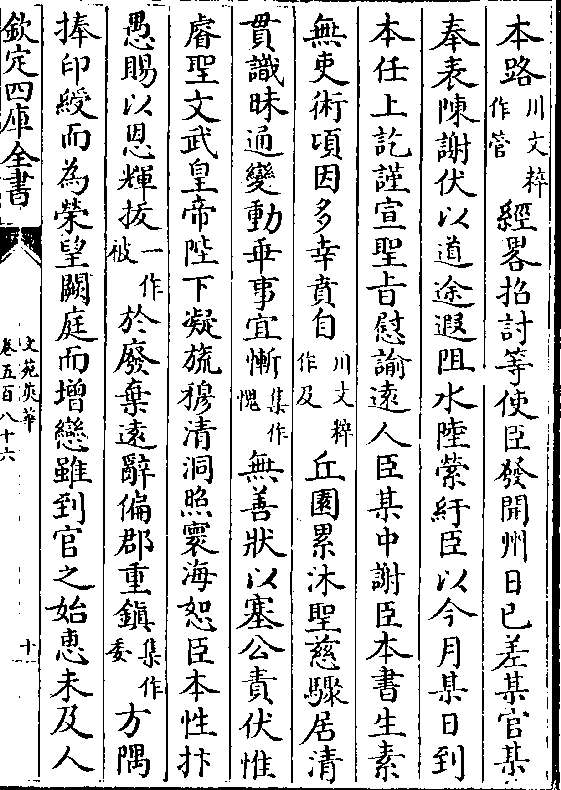 本路川文粹作管經畧招討等使臣發開州日已差某官某
奉表陳謝伏以道途遐阻水陸縈紆臣以今月某日到
本任上訖謹宣聖旨慰諭遠人臣某中謝臣本書生素
無吏術項因多幸賁自川文粹作及丘園累沐聖慈驟居清
貫識昧通變動乖事宜慚集作愧無善狀以塞公責伏惟
睿聖文武皇帝陛下凝旒穆清洞照寰海恕臣本性抃
愚賜以恩輝拔一作被於廢棄遠辭偏郡重鎮集作委方隅
捧印綬而為榮望闕庭而增戀雖到官之始惠未及人
欽定四庫全書
文苑英華
卷五百八十六
十